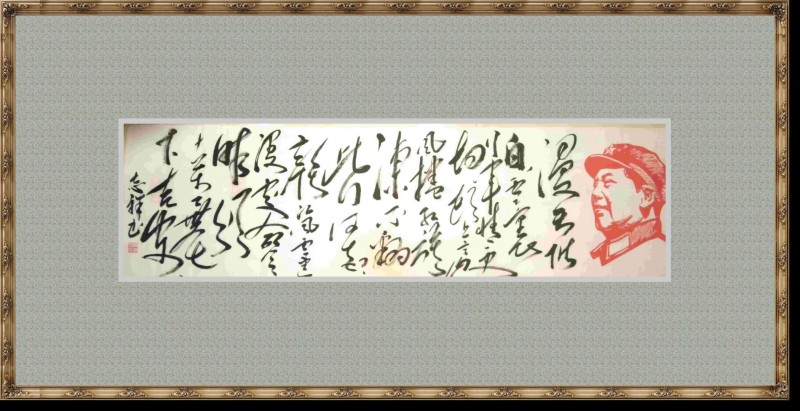 漫天皆
白雪里
行军情更
迫头上高山
风卷红旗
凍不翻
此行何去
赣江風雪迷
漫处命令
昨颁
十万工农
下吉安
志祥书